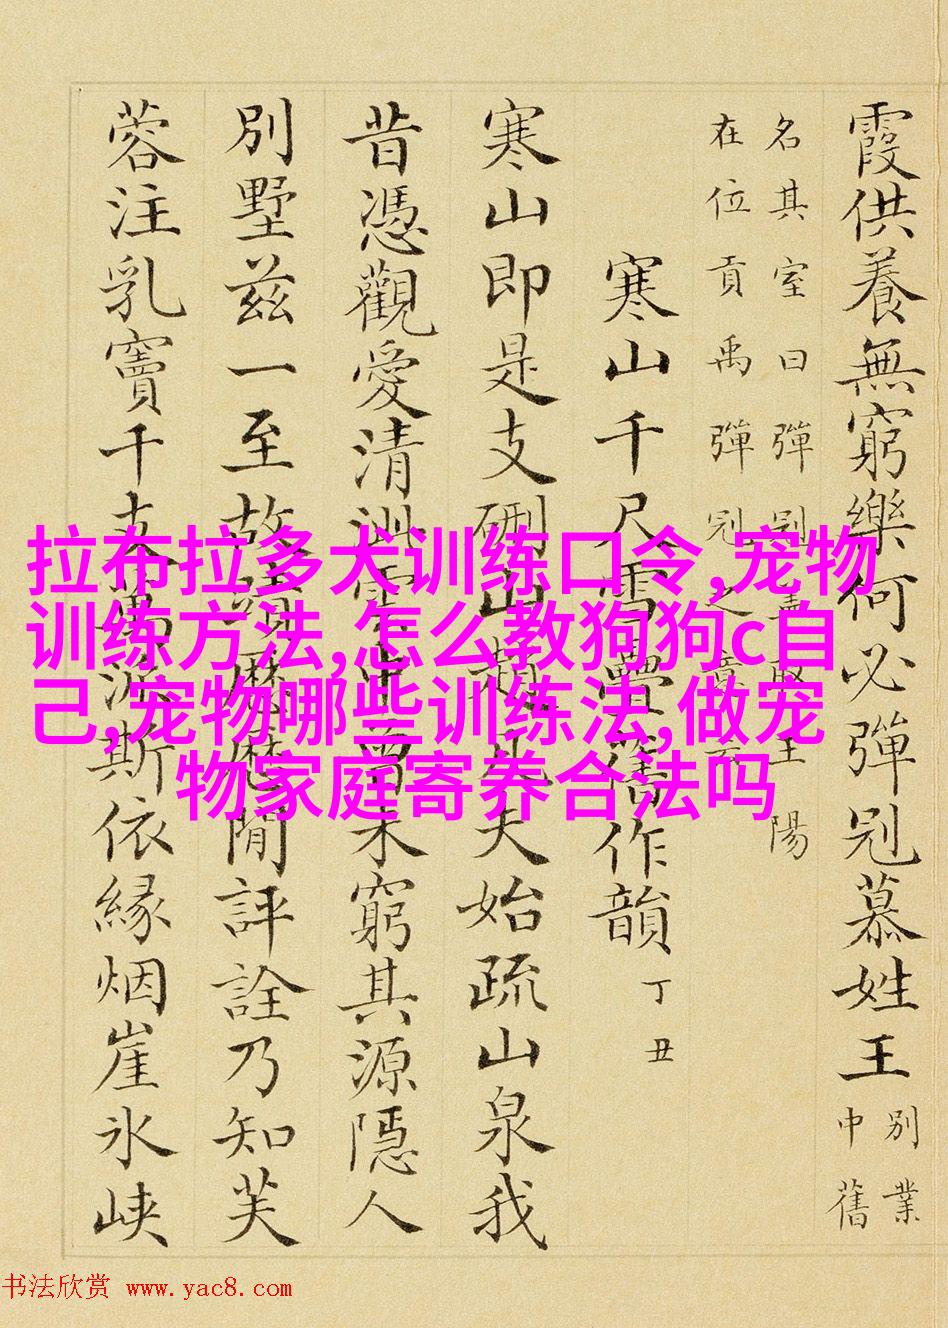 霞供養無窮樂何必彈冠慕姓王
別業
中舊
名其室曰彈冠盖取王陽
在位貢禹彈冠之意云
寒山千尺雪疊舊作韻 丁丑
寒山即是支硎山夫始疏山泉我
昔憑觀愛清曾未窮其源隱人
別墅茲一至故歷歷閒評詮乃知芙
蓉注乳竇千支萬派斯依緣烟崖氷峽
拉布拉多犬训练口令,宠物
训练方法,怎么教狗狗c自
己,宠物哪些训练法,做宠
物家庭寄养合法吗
书法欣赏 www.yac8.com